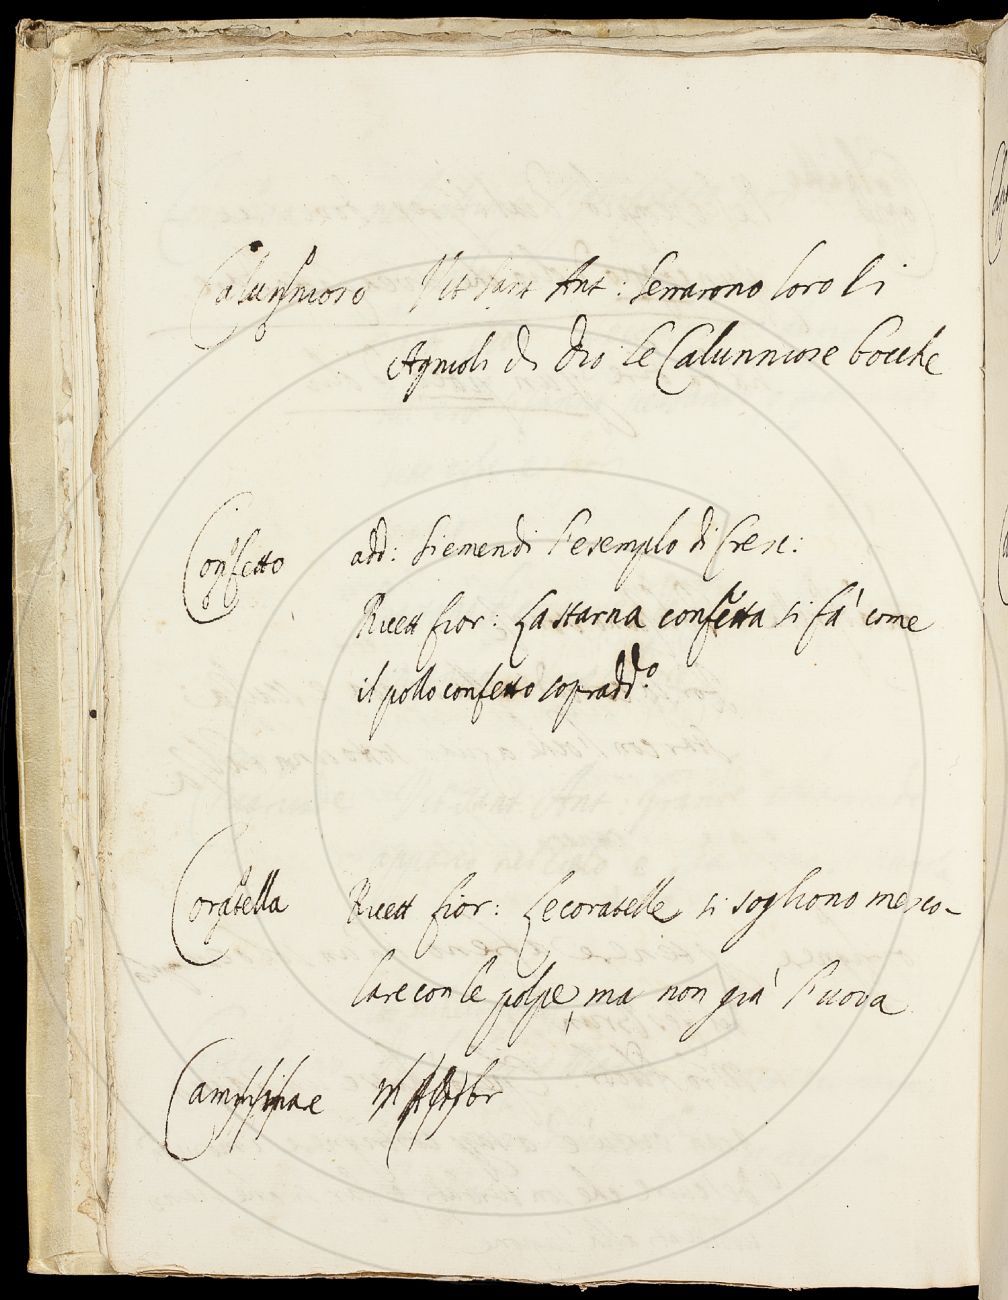 Calunnioso Vit Sant Ant: Serrarono loro li
Agnioli di Dio le Calunniose bocche
Confetto add: Si emendi l'esemplo di Cresc:
Ricett fior: La starna confetta si fà come
il pollo confetto sopradd.º
Coratella Ricett fior: Le coratelle si sogliono mesco-
lare con le polpe, ma non già l'uova